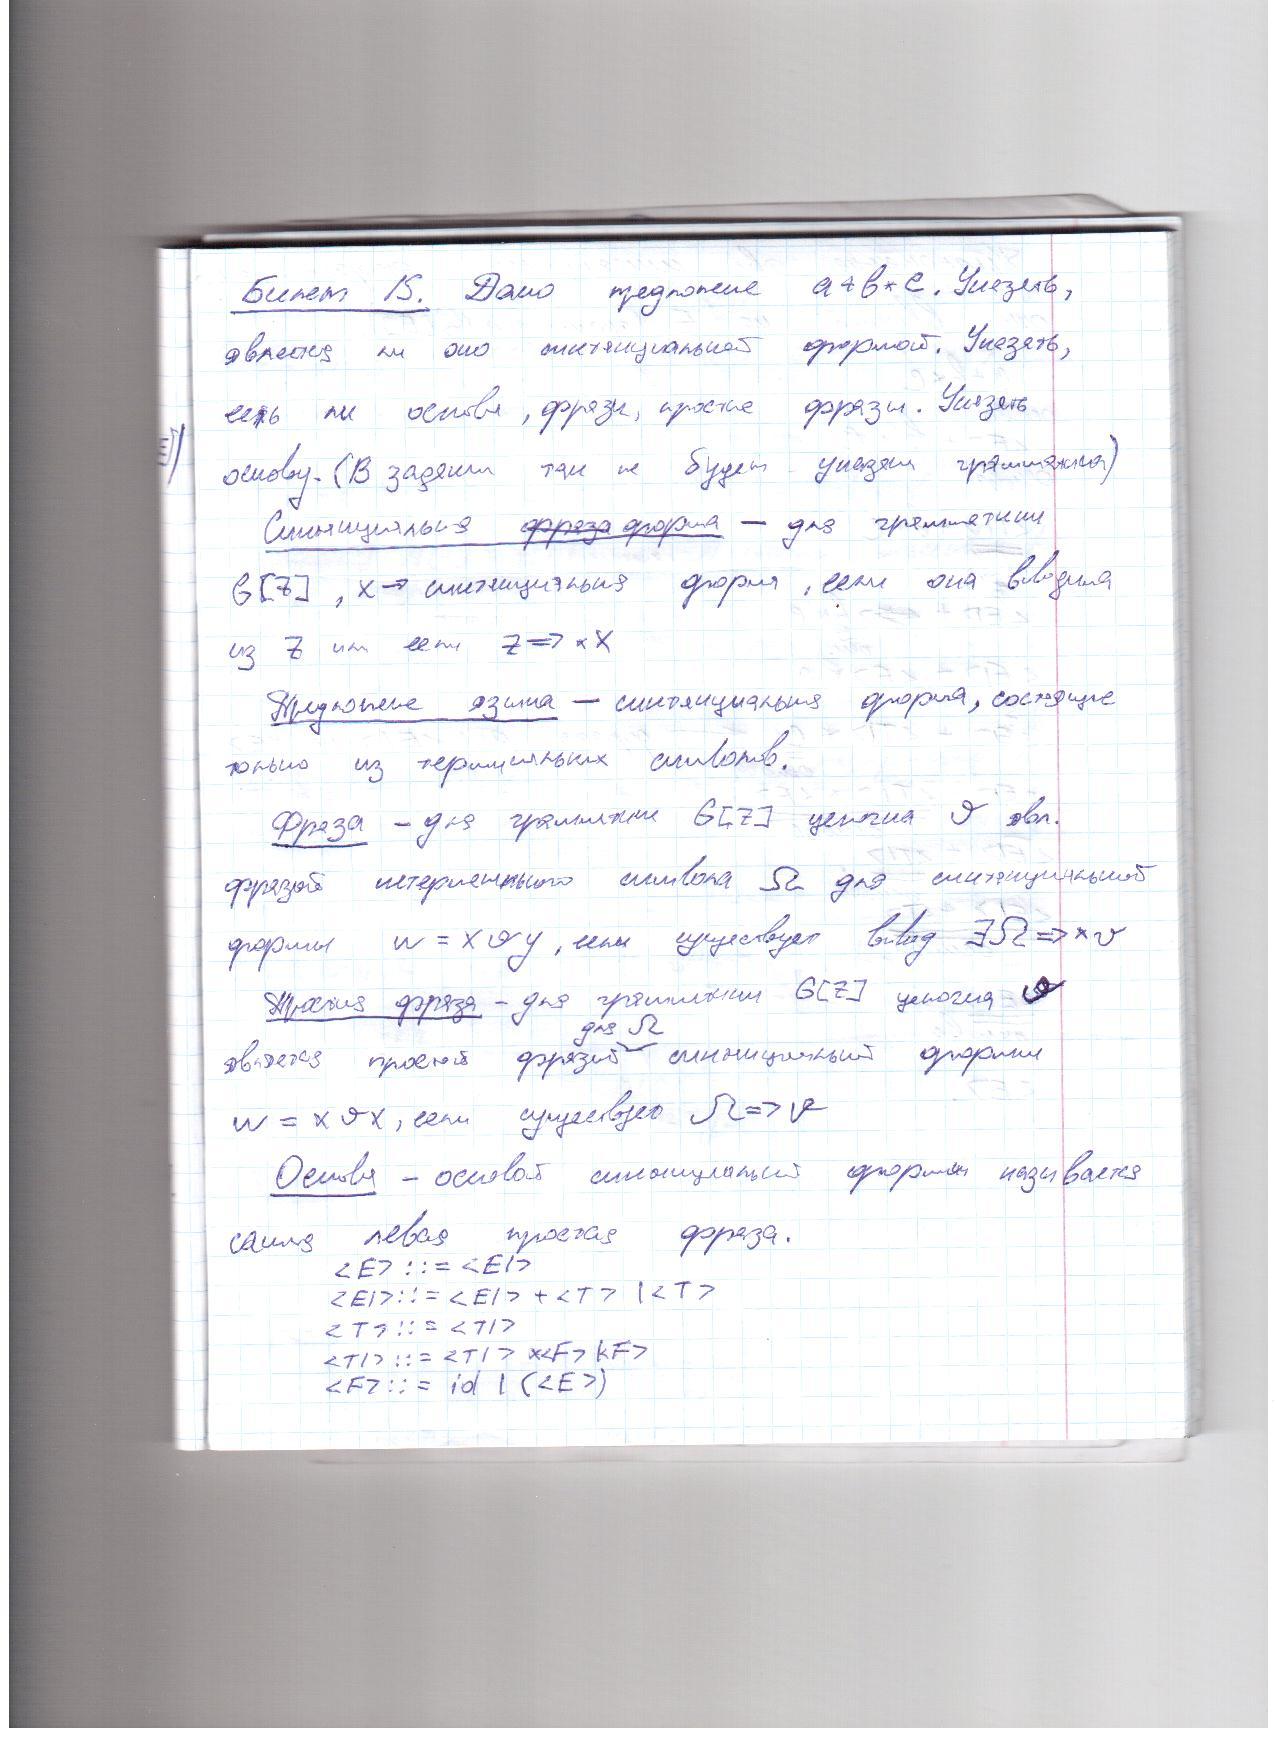 Билет 15. Дано предложение a+b*c. Указать,
является ли оно синтенциальной формой. Указать,
есть ли основа, фразы, простые фразы. Указать
основу. (В задании так не будет указана грамматика)
Синтенциальная фраза форма — для грамматики
G[Z], x → синтенциальная форма, если она выводима
из Z или если Z=>*X
Предложение языка — синтенциальная форма, состоящие
только из терминальных символов.
Фраза — для грамматики G[Z] цепочка ϑ явл.
фразой нетерминального символа Ω для синтенциальной
формы w = xϑy, если существует вывод ∃Ω=>*ϑ
Простая фраза - для грамматики G[Z] цепочка ϑ
для Ω
является простой фразой синтенциальный формы
w = xϑx, если существует Ω=>ϑ
Основа - основой синтенциальный формы называется
самая левая простая фраза.
<E> ::= <E1>
<E1>::= <E1> + <T> | <T>
<T>::= <T1>
<T1>::= <T1> *<F> |<F>
<F>::= id | (<E>)